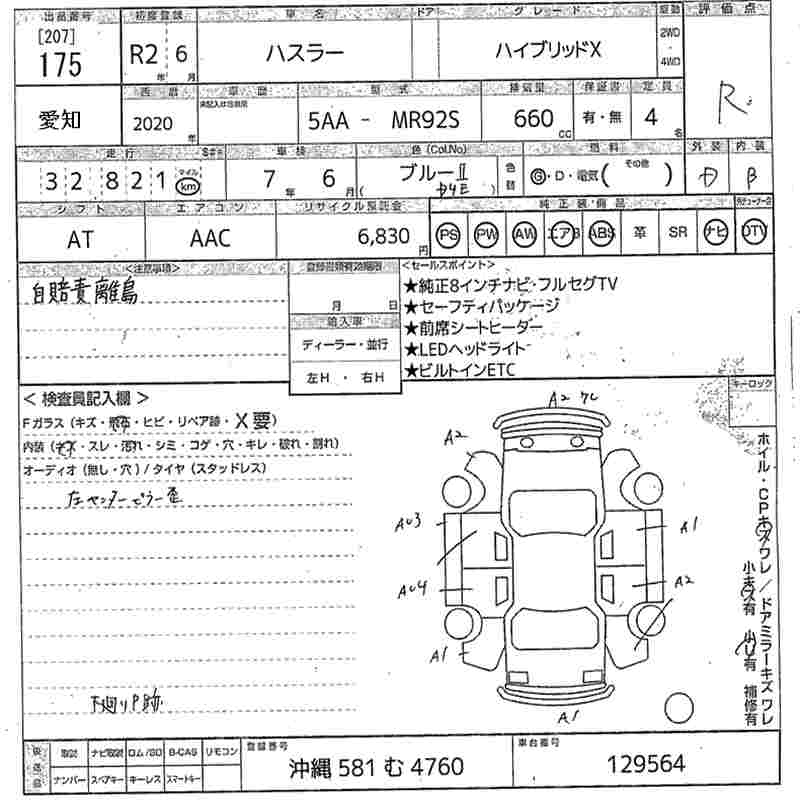 出品番号 初度登録 車名 ドア グレード 駆動 評価点
[207]
175 R2年 6月 ハスラー ハイブリッドX 2WD・4WD R
愛知 西暦 2020年 車歴 型式 5AA - MR92S 排気量 660cc 保証書 有・無 定員 4名
走行 32821 マイル km 車検 7年 6月 色(Col.No) ブルーⅡ 色替 燃料 G・D・電気( その他 ) 外装 内装 B
シフト エアコン リサイクル預託金 純正装備品
AT AAC 6,830円 PS PW AW エアB ABS 革 SR ナビ DTV
<注意事項>
自賠責離島
登録書類有効期限
月 日
輸入車
ディーラー・並行
左H ・ 右H
<セールスポイント>
★純正8インチナビ・フルセグTV
★セーフティパッケージ
★前席シートヒーター
★LEDヘッドライト
★ビルトインETC
キーロック
< 検査員記入欄 >
Fガラス(キズ・飛石・ヒビ・リペア跡・X要)
内装(キズ・スレ・汚れ・シミ・コゲ・穴・キレ・破れ・割れ)
オーディオ(無し・穴)/タイヤ(スタッドレス)
左センターピラー歪
下廻りP跡
A2
A2
A03
A04
A1
A1
A2
A1
ホイル・CPキズワレ/ドアミラーキズワレ
小キズ有 小凹有 補修有
後送品 取説 ナビ取説 ロム/SD B-CAS リモコン
ナンバー スペアキー キーレス スマートキー
登録番号
沖縄 581 む 4760
車台番号
129564